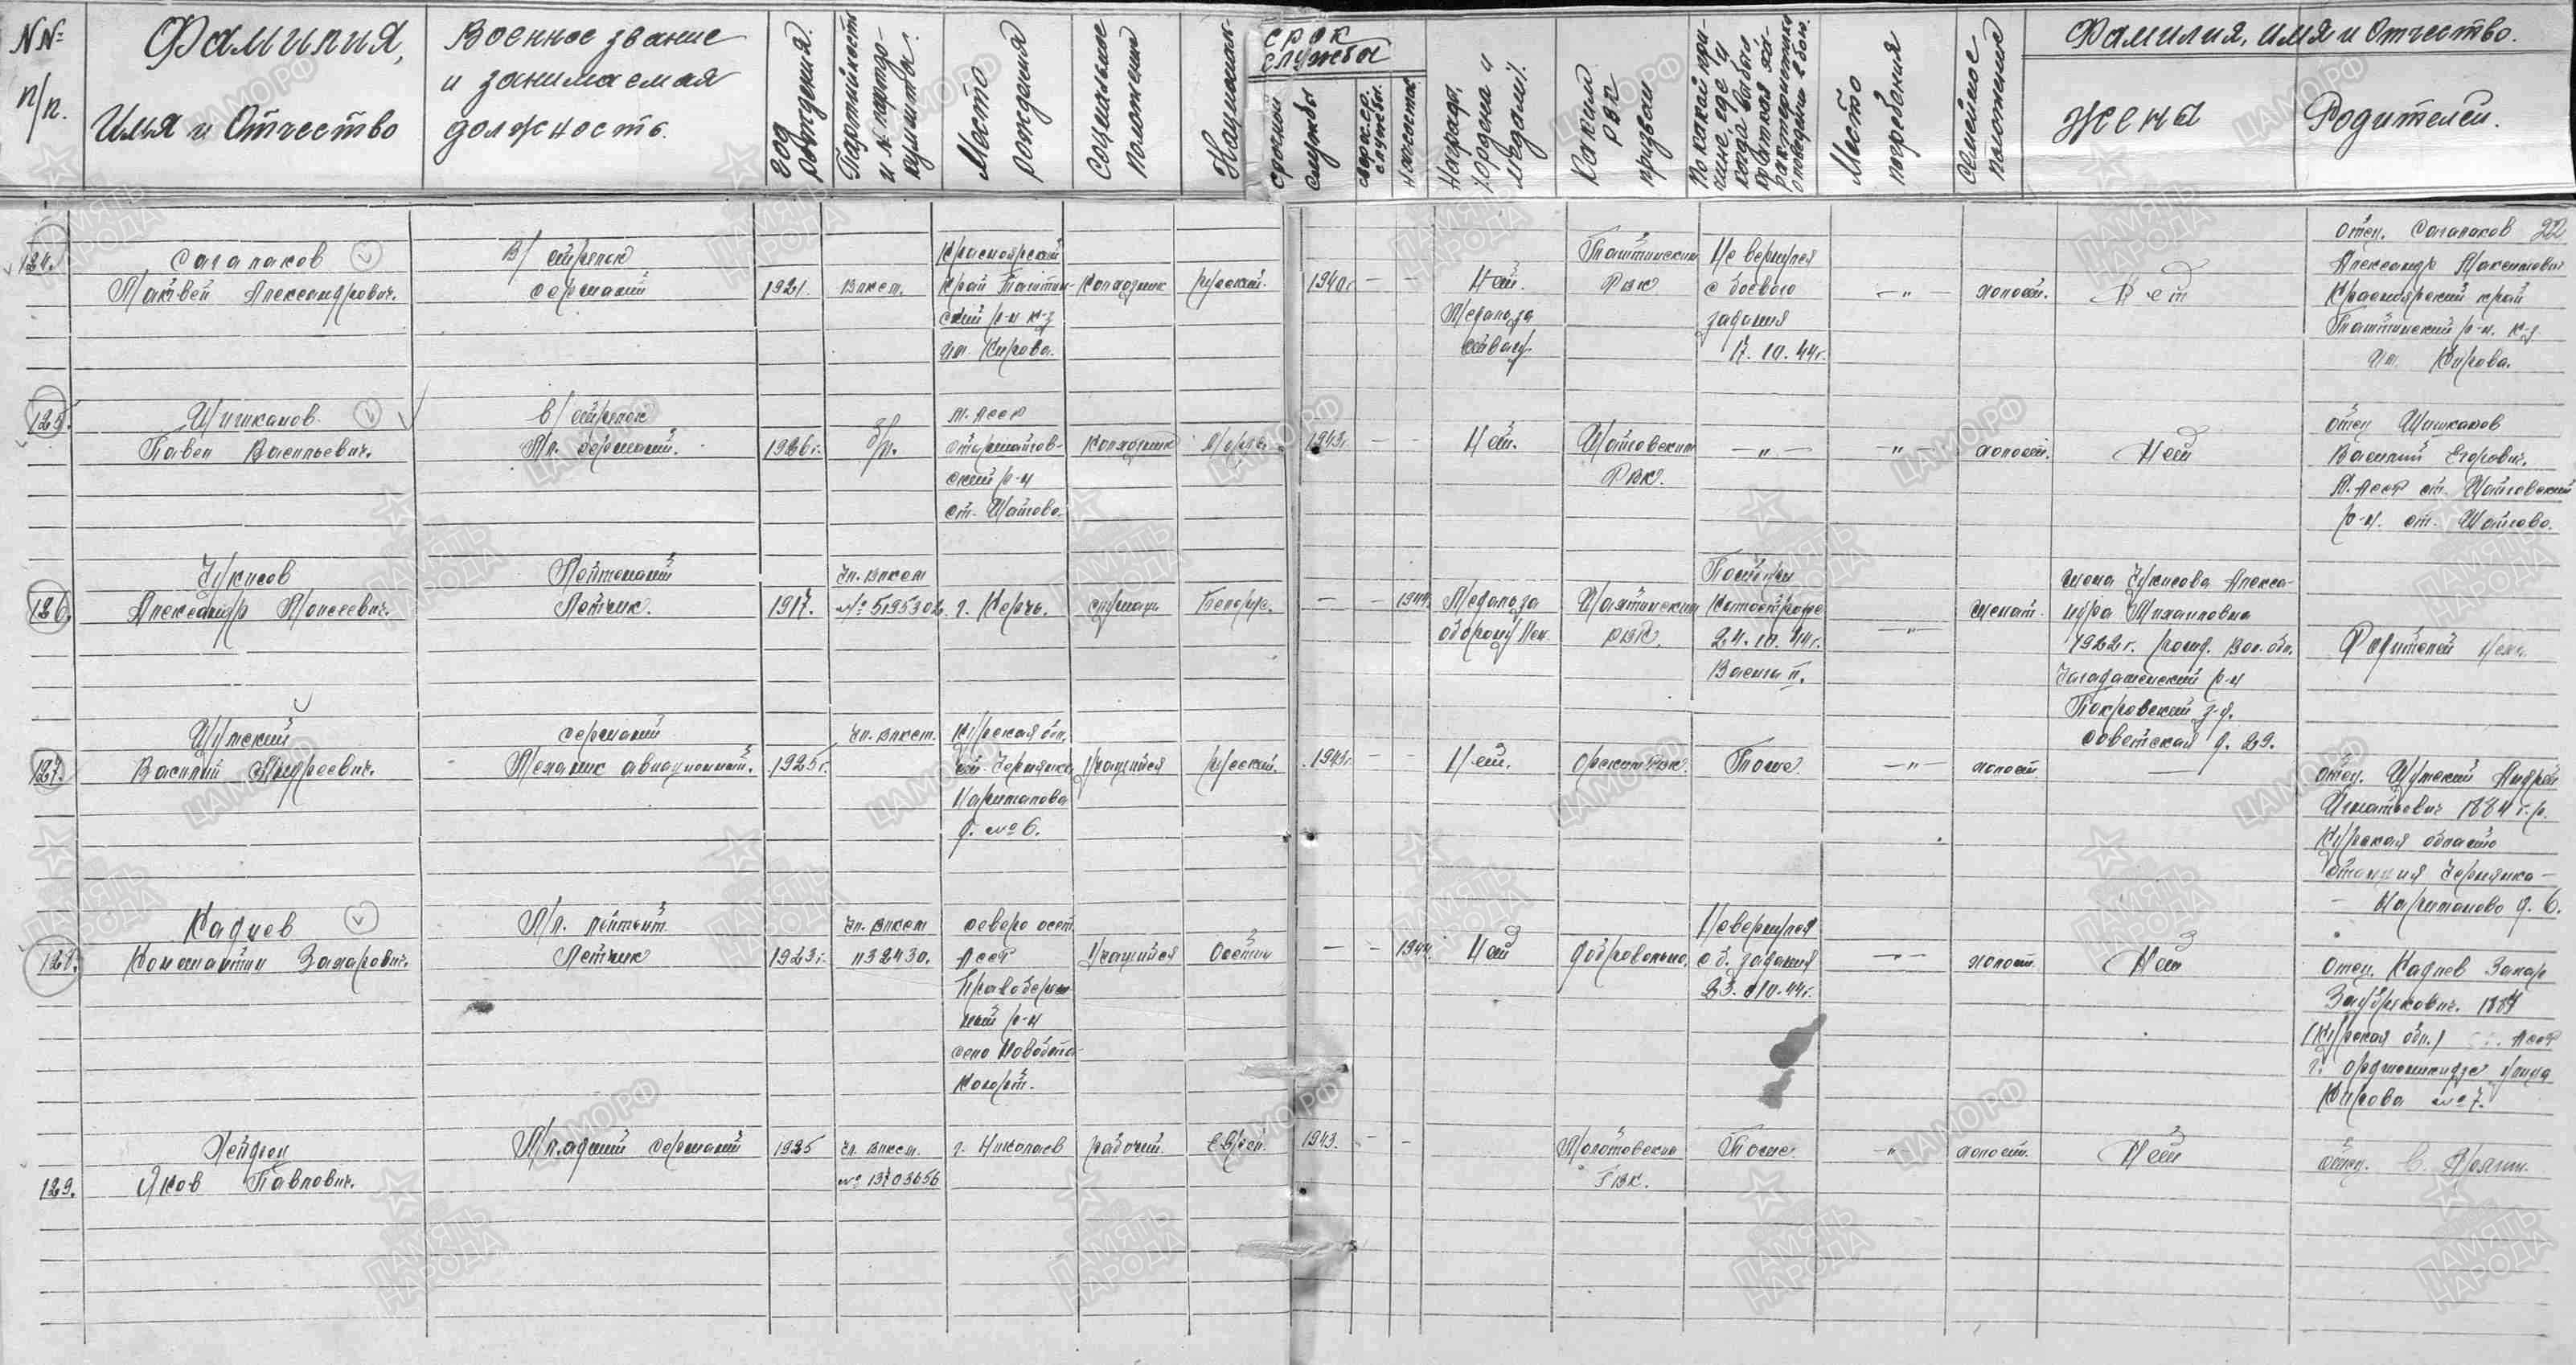 NN° п/п.
Фамилия,
Имя и Отчество
Военное звание
и занимаемая
должность.
год рождения.
Партийность и № партдокумента.
Место рождения
Социальное положение
Национальн.
срок службы
срочной службы
Награды, (ордена и медали).
Каким РВК призван
Место погребения
Семейное положение
Фамилия, имя и Отчество.
Жены
Родителей.
22
124.
Сагалаков
Матвей Александрович.
В/стрелок
сержант
1921.
ВЛКСМ.
Красноярский
край Таштып-
ский р-н к-з
им. Кирова.
Колхозник
русский.
1940г.
Нет.
Медаль за
Таштыпским
РВК
Не вернулся
с боевого
задания
17.10.44г.
—"—
холост.
Нет
отец. Сагалаков
Александр Максимович
Красноярский край
Таштыпский р-н. к-з
им. Кирова.
125.
Шишканов.
Павел Васильевич.
В/стрелок
Мл. сержант.
1926г.
б/п.
М. АССР
старшайгов-
ский р-н
ст. Шайгово.
Колхозник
Мордв.
1943г.
Нет.
Шайговским
РВК.
—"—
—"—
холост.
Нет
отец Шишканов
Василий Егорович.
М. АССР ст. Шайговский
р-н. ст. Шайгово.
126.
Чукисов
Александр Моисеевич.
Лейтенант
Летчик.
1917.
Чл. ВЛКСМ
№ 5195302.
г. Керчь.
служащ
Белорус.
1944
Медаль за
оборону Лен.
РВК.
Катастрофе
24.10.44г.
Ваенга II.
—"—
женат.
жена Чукисова Алекса-
ндра Михайловна
1922г. рожд. Вол. обл.
Чагодощенский р-н
Покровский з-д.
Советская д. 29.
Родителей нет.
127.
Шумский
Василий Андреевич.
сержант
Механик авиационный.
1925г.
Чл. ВЛКСМ.
Курская обл.
ст. Чернянка
Нариманова
д. № 6.
Учащийся
русский.
1943г.
Нет.
Орским РВК.
Тоже.
—"—
холост.
—
отец. Шумский Андрей
Игнатьевич 1884 г.р.
Курская область
станция Чернянка –
– Нариманово д. 6.
128.
Кадиев
Константин Захарович.
Мл. лейтент.
Летчик
1923г.
Чл. ВЛКСМ
1132430.
северо осет.
АССР
Правобереж
ный р-н
село Новобата
Когорт.
Учащийся
Осетин
1944
Нет
Добровольно.
Не вернулся
с б. задания
23.10.44г.
холост.
Нет
отец. Кадиев Захар
1887
(Курская обл.) АССР
г. Орджоникидзе улица
Кирова № 7.
129.
Лейдец
Яков Павлович.
Младший сержант
1925
Чл. ВЛКСМ.
№ 13703656
г. Николаев
рабочий.
Еврей.
1943.
Молотовским
ГВК.
Тоже.
—"—
холост.
Нет
отец.
ПАМЯТЬ НАРОДА
ЦАМО.РФ